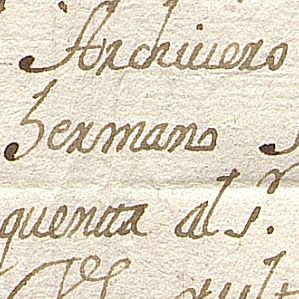 Archivero
hermano
quenta al s.r